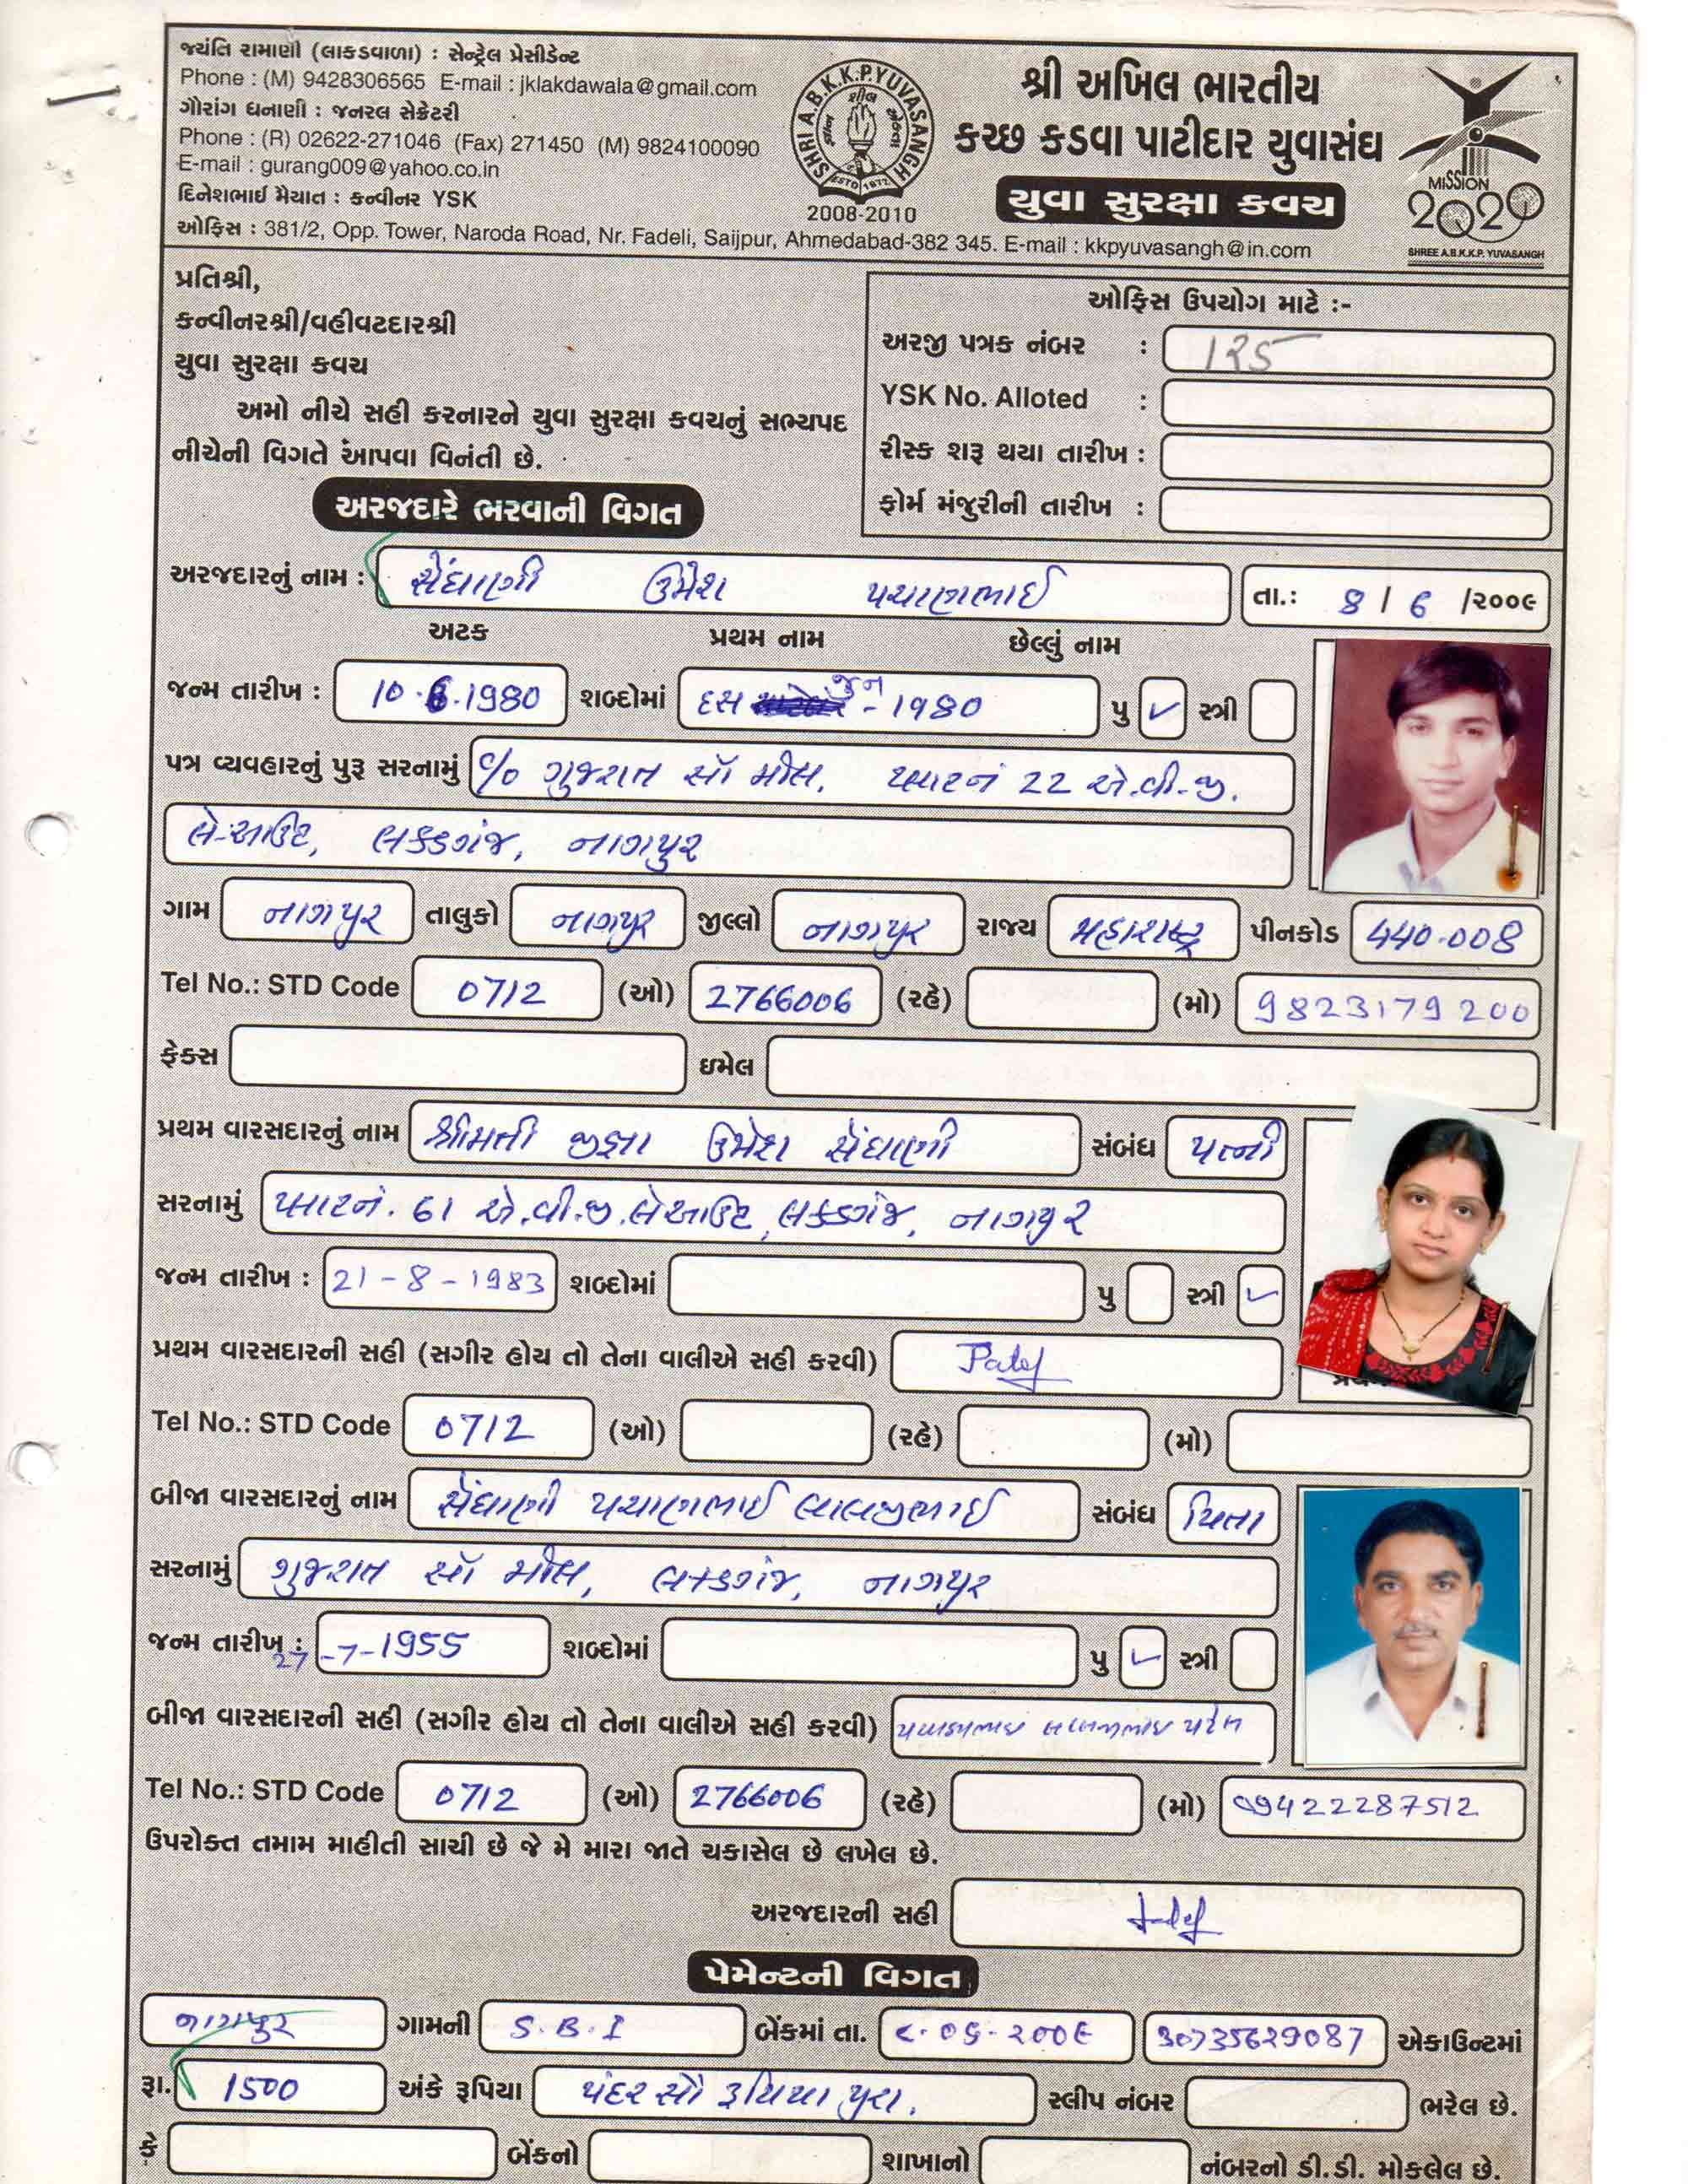 જ્યંતિ રામાણી (લાકડવાળા) : સેન્ટ્રેલ પ્રેસીડેન્ટ
Phone : (M) 9428306565 E-mail : jklakdawala@gmail.com
ગૌરાંગ ધનાણી : જનરલ સેક્રેટરી
Phone : (R) 02622-271046 (Fax) 271450 (M) 9824100090
E-mail : gurang009@yahoo.co.in
દિનેશભાઈ મૈયાત : કન્વીનર YSK
ઓફિસ : 381/2, Opp. Tower, Naroda Road, Nr. Fadeli, Saijpur, Ahmedabad-382 345. E-mail : kkpyuvasangh@in.com
SHRI A.B.K.K.P. YUVASANGH
ESTD 1972
2008-2010
શ્રી અખિલ ભારતીય
કચ્છ કડવા પાટીદાર યુવાસંઘ
યુવા સુરક્ષા કવચ
MISSION
2020
SHREE A.B.K.K.P. YUVASANGH
પ્રતિશ્રી,
કન્વીનરશ્રી/વહીવટદારશ્રી
યુવા સુરક્ષા કવચ
અમો નીચે સહી કરનારને યુવા સુરક્ષા કવચનું સભ્યપદ
નીચેની વિગતે આપવા વિનંતી છે.
ઓફિસ ઉપયોગ માટે :-
અરજી પત્રક નંબર : 125
YSK No. Alloted :
રીસ્ક શરૂ થયા તારીખ :
ફોર્મ મંજુરીની તારીખ :
અરજદારે ભરવાની વિગત
અરજદારનું નામ : સેંઘાણી ઉમેશ પચાણભાઈ તા.: 8 / 6 /૨૦૦૯
અટક પ્રથમ નામ છેલ્લું નામ
જન્મ તારીખ : 10.6.1980 શબ્દોમાં દસ જુન - 1980 પુ ✓ સ્ત્રી
પત્ર વ્યવહારનું પુરૂ સરનામું C/o ગુજરાત સૉ મીલ, પ્લાટનં 22 એ.વી.જી.
લે-આઉટ, લકડગંજ, નાગપુર
ગામ નાગપુર તાલુકો નાગપુર જીલ્લો નાગપુર રાજ્ય મહારાષ્ટ્ર પીનકોડ 440.008
Tel No.: STD Code 0712 (ઓ) 2766006 (રહે) (મો) 9823179200
ફેક્સ ઇમેલ
પ્રથમ વારસદારનું નામ શ્રીમતી જીજ્ઞા ઉમેશ સેંઘાણી સંબંધ પત્ની
સરનામું પ્લાટનં. 61 એ.વી.જી.લેઆઉટ, લકડગંજ, નાગપુર
જન્મ તારીખ : 21-8-1983 શબ્દોમાં પુ સ્ત્રી ✓
પ્રથમ વારસદારની સહી (સગીર હોય તો તેના વાલીએ સહી કરવી)
Tel No.: STD Code 0712 (ઓ) (રહે) (મો)
બીજા વારસદારનું નામ સેંઘાણી પચાણભાઈ લાલજીભાઈ સંબંધ પિતા
સરનામું ગુજરાત સૉ મીલ, લકડગંજ, નાગપુર
જન્મ તારીખ : 27-7-1955 શબ્દોમાં પુ ✓ સ્ત્રી
બીજા વારસદારની સહી (સગીર હોય તો તેના વાલીએ સહી કરવી) પચાણભાઇ લાલજીભાઇ પટેલ
Tel No.: STD Code 0712 (ઓ) 2766006 (રહે) (મો) 09422287512
ઉપરોક્ત તમામ માહીતી સાચી છે જે મે મારા જાતે ચકાસેલ છે લખેલ છે.
અરજદારની સહી
પેમેન્ટની વિગત
નાગપુર ગામની S.B.I બેંકમાં તા. 30735629087 એકાઉન્ટમાં
રૂા. 1500 અંકે રૂપિયા પંદર સૌ રૂપિયા પુરા. સ્લીપ નંબર ભરેલ છે.
કે બેંકનો શાખાનો નંબરનો ડી.ડી. મોકલેલ છે.